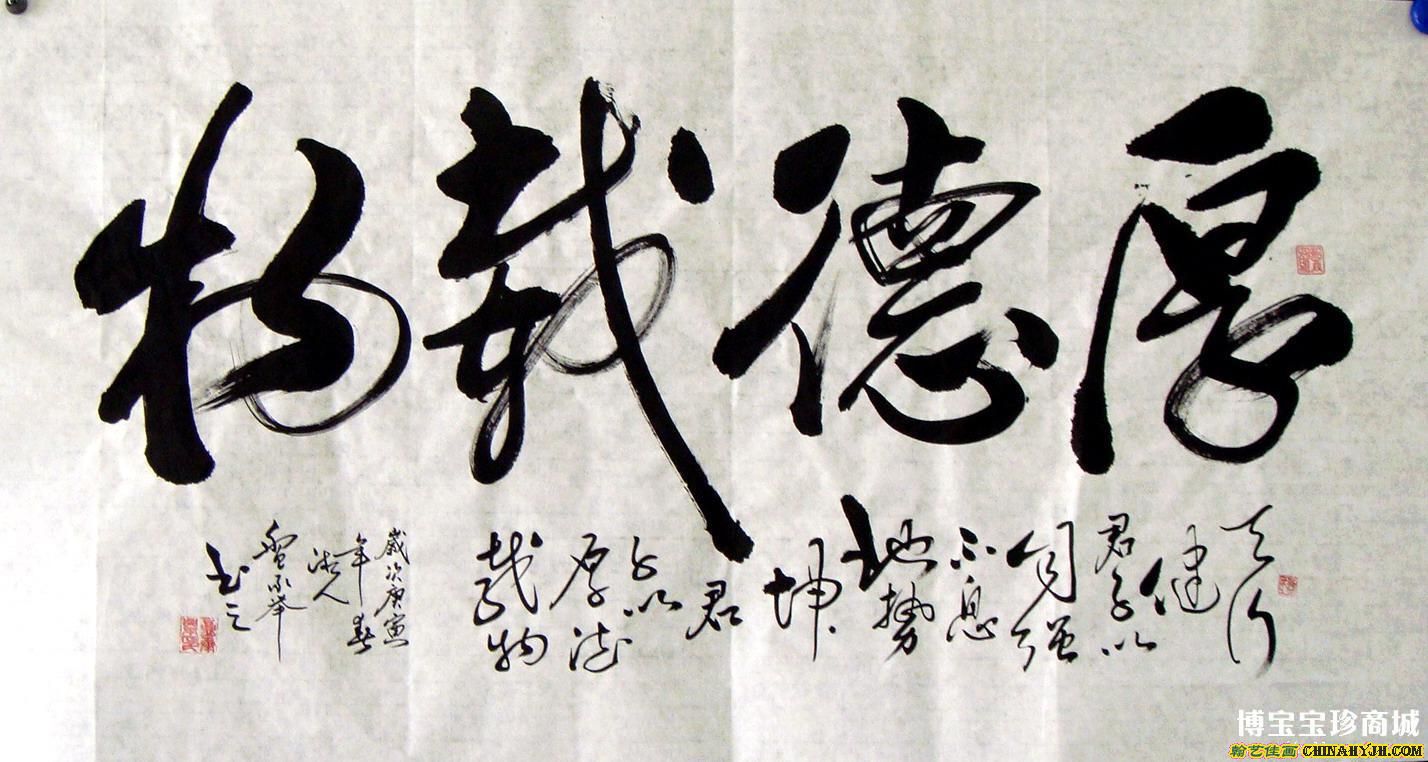 厚德載物
天行
健
君子以
自强
不息
地势
坤
君
子以
厚德
載物
歲次庚寅
年春
书之
博宝宝珍商城
翰艺佳画 CHINAHYJH.COM